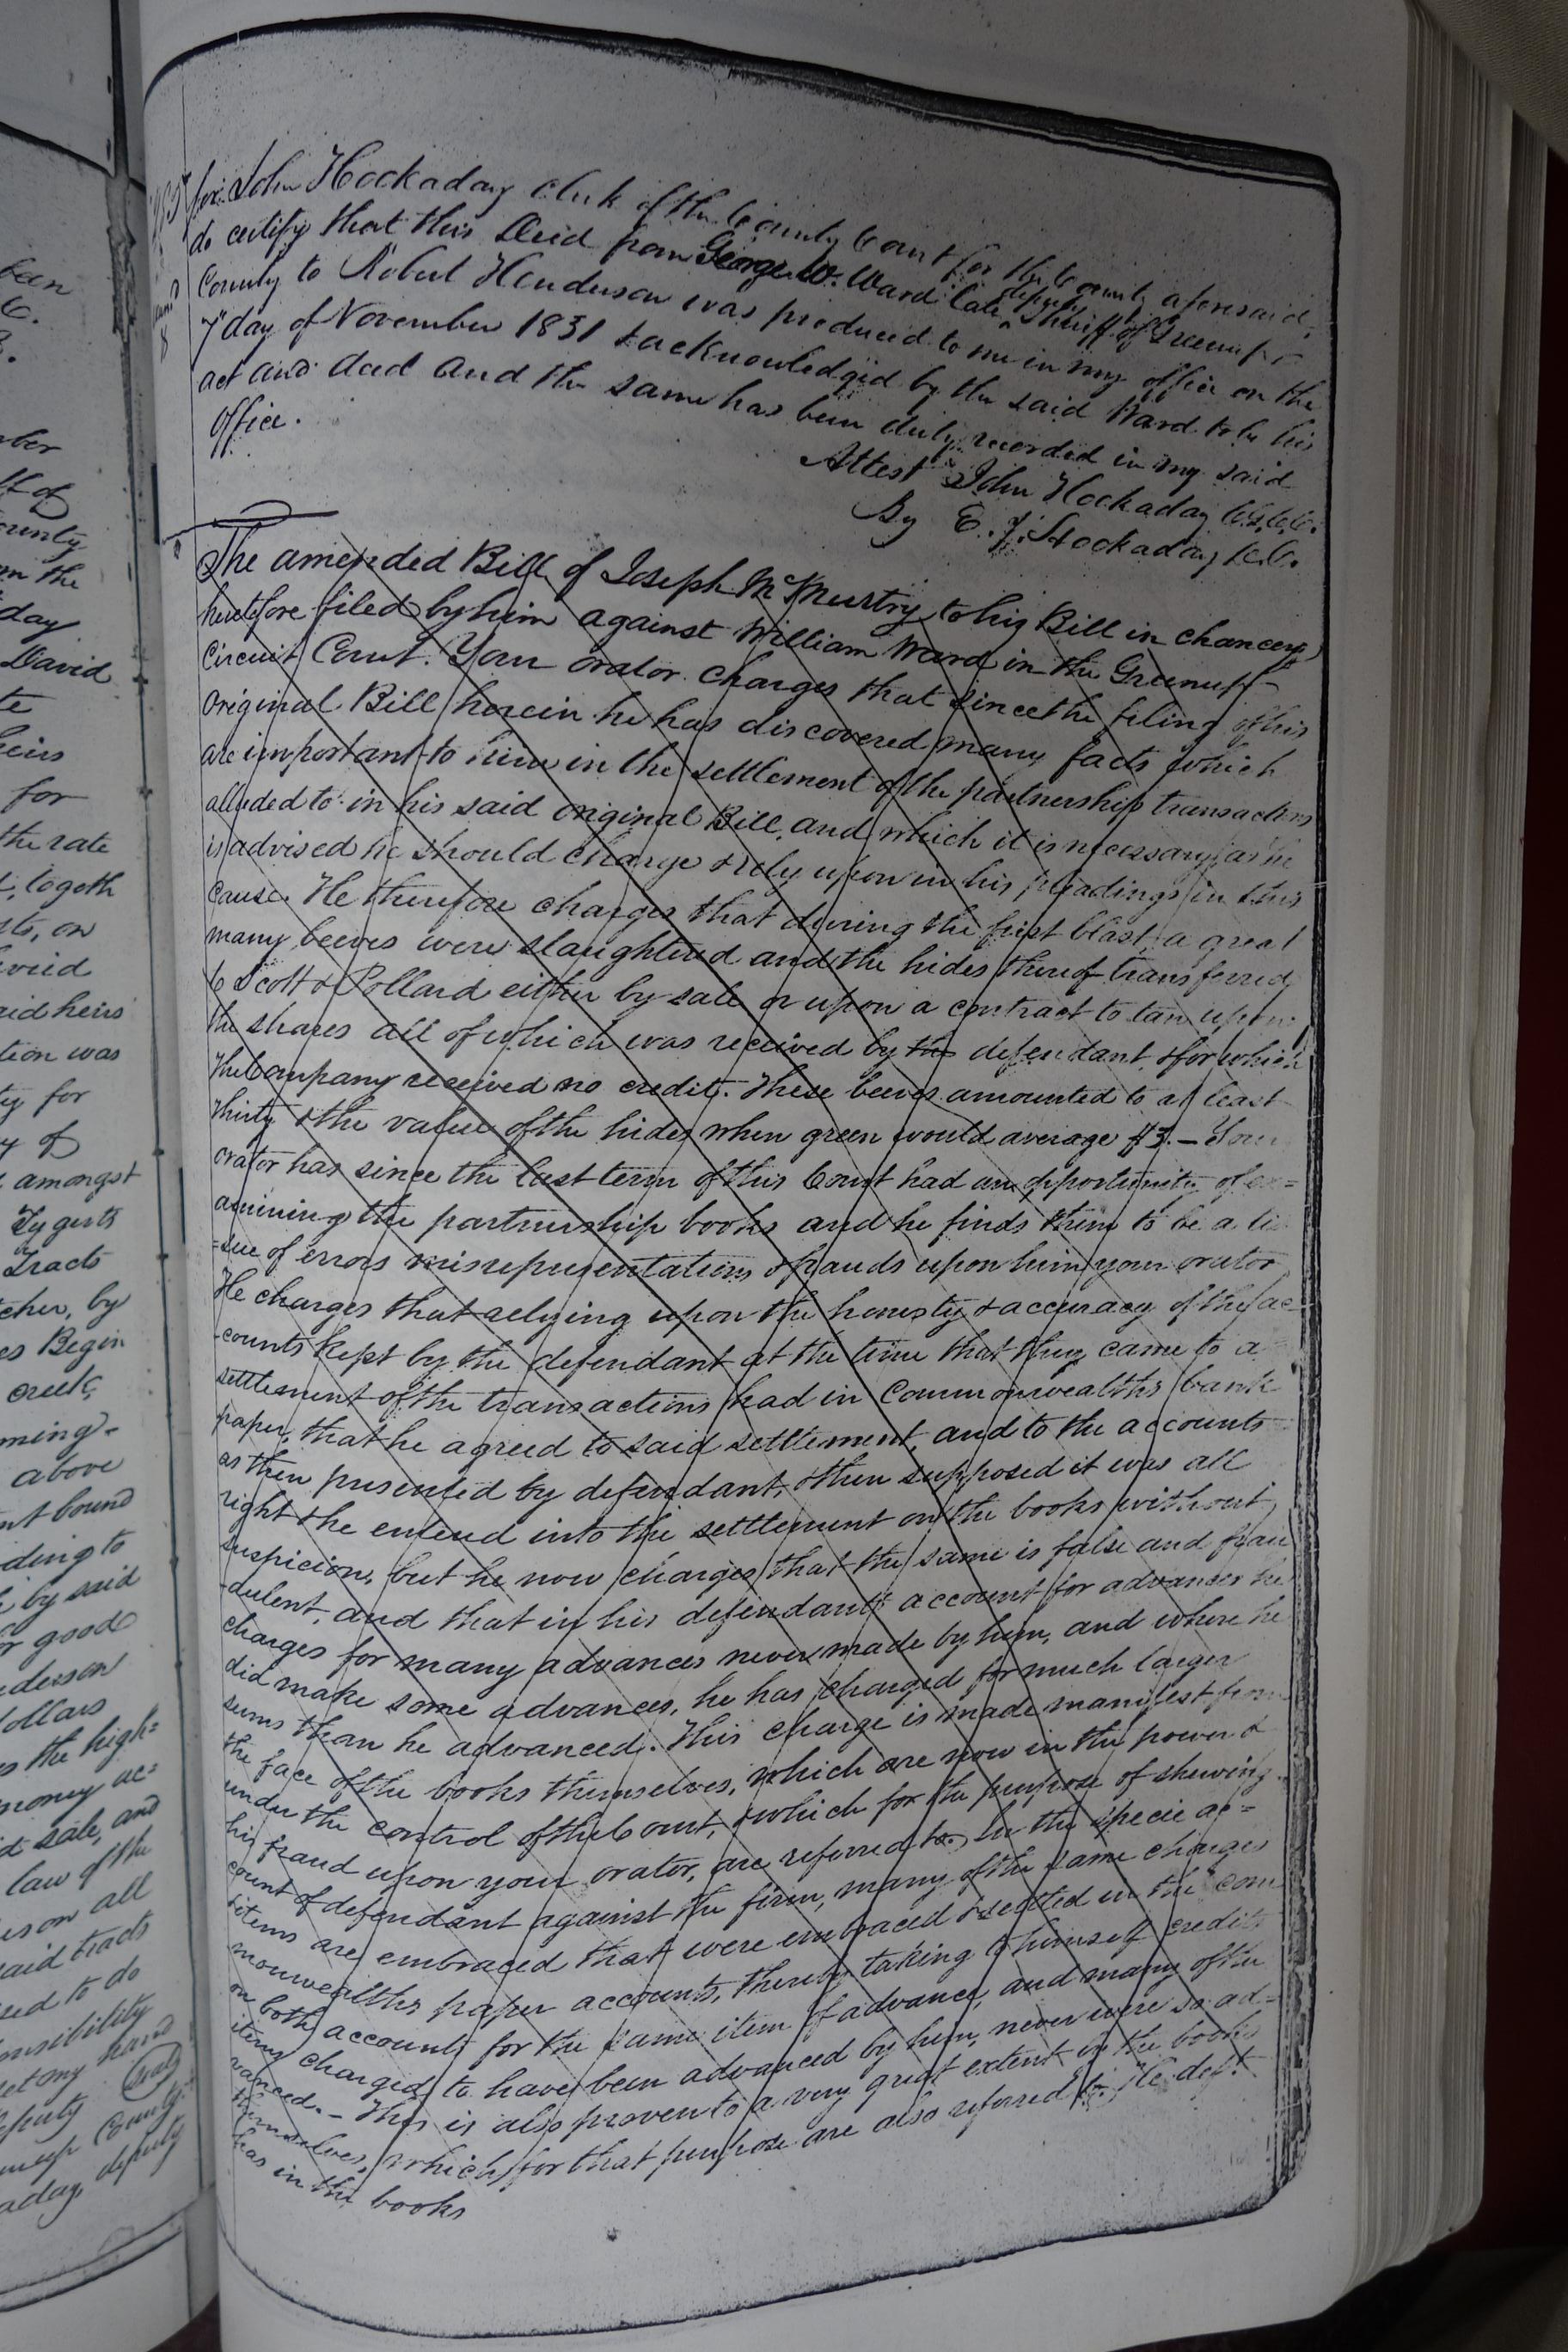 been
6.
3.
ber
ff of
ounty
m the
day
David
te
heirs
for
the rate
togeth
ts, on
aid heirs
tion was
ty for
y of
amongst
Tygerts
Tracts
cher, by
es Begin
creek,
ming-
above
nt bound
ding to
by said
or good
derson
dollars
s the high=
money ac=
d sale, and
law of the
son all
said tracts
sed to do
onsibility
set my hand
deputy (seal)
nup County
aday, deputy
for: John Hockaday clerk of the County Court for the County aforesaid,
do certify that this Deed from George W. Ward late deputy Sheriff of Greenup
County to Robert Henderson was produced to me in my office on the
7" day of November 1831 & acknowledged by the said Ward to be his
act and deed and the same has been duly recorded in my said
office.
Attest John Hockaday C.G.C.C.
By E. J. Hockaday D.C.
The amended Bill of Joseph McMurtry to his Bill in chancery
heretofore filed by him against William Ward in the Greenup
Circuit Court. Your orator charges that since the filing of his
original Bill herein he has discovered many facts which
are important to him in the settlement of the partnership transactions
alluded to in his said original Bill, and which it is necessary as he
is advised he should charge & rely upon in his pleadings in this
cause. He therefore charges that during the first blast a great
many beeves were slaughtered and the hides thereof transferred
to Scott & Pollard either by sale or upon a contract to tan upon
the shares all of which was received by the defendant, & for which
the Company received no credit. These beeves amounted to at least
thirty & the value of the hides when green would average $3. – Your
orator has since the last term of this Court had an opportunity of ex=
amining the partnership books and he finds them to be a tis
=sue of errors misrepresentations & frauds upon him your orator
He charges that relying upon the honesty & accuracy of the ac
-counts kept by the defendant at the time that they came to a
settlement of the transactions had in Commonwealths bank
paper, that he agreed to said settlement, and to the accounts
as then presented by defendant, & then supposed it was all
right & he entered into the settlement on the books without
suspicion, but he now charges that the same is false and frau
-dulent, and that in his defendants account for advances he
charges for many advances never made by him, and where he
did make some advances, he has charged for much larger
sums than he advanced. This charge is made manifest from
the face of the books themselves, which are now in the power &
under the control of the Court, & which for the purpose of shewing
his fraud upon your orator, are referred to. In the specie ac=
count of defendant against the firm, many of the same charges
& items are embraced that were embraced & settled in the com
monwealths paper accounts, thereby taking to himself credits
on both accounts for the same item of advance, and many of the
items charged to have been advanced by him, never were so ad-
vanced. – This is also proven to a very great extent by the books
themselves, which for that purpose are also referred to. The deft.
has in the books